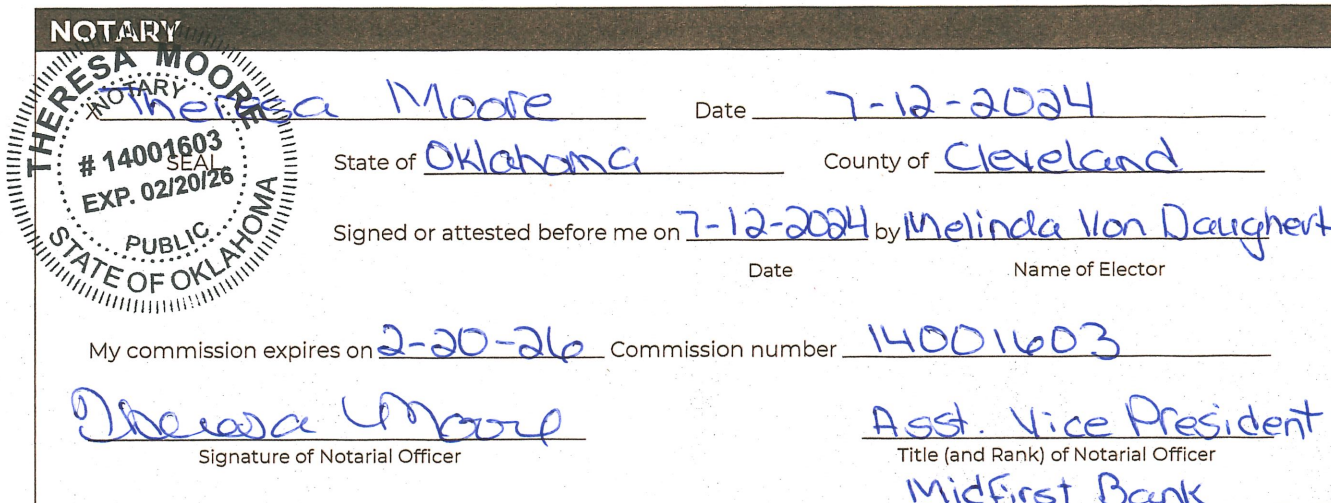 NOTARY
THERESA MOORE
NOTARY
# 14001603
EXP. 02/20/26
PUBLIC
STATE OF OKLAHOMA
SEAL
Theresa Moore Date 7-12-2024
State of Oklahoma County of Cleveland
Signed or attested before me on 7-12-2024 by Melinda Von Daughert
Date Name of Elector
My commission expires on 2-20-26 Commission number 14001603
Theresa Moore Asst. Vice President
Signature of Notarial Officer Title (and Rank) of Notarial Officer
Midfirst Bank